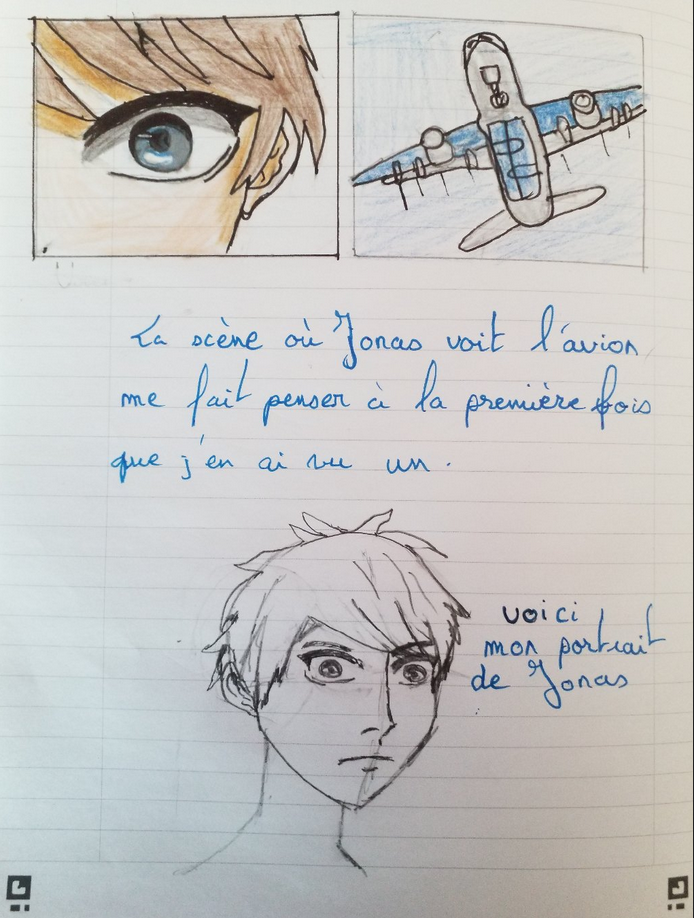 La scène où Jonas voit l'avion
me fait penser à la première fois
que j'en ai vu un.
voici
mon portrait
de Jonas